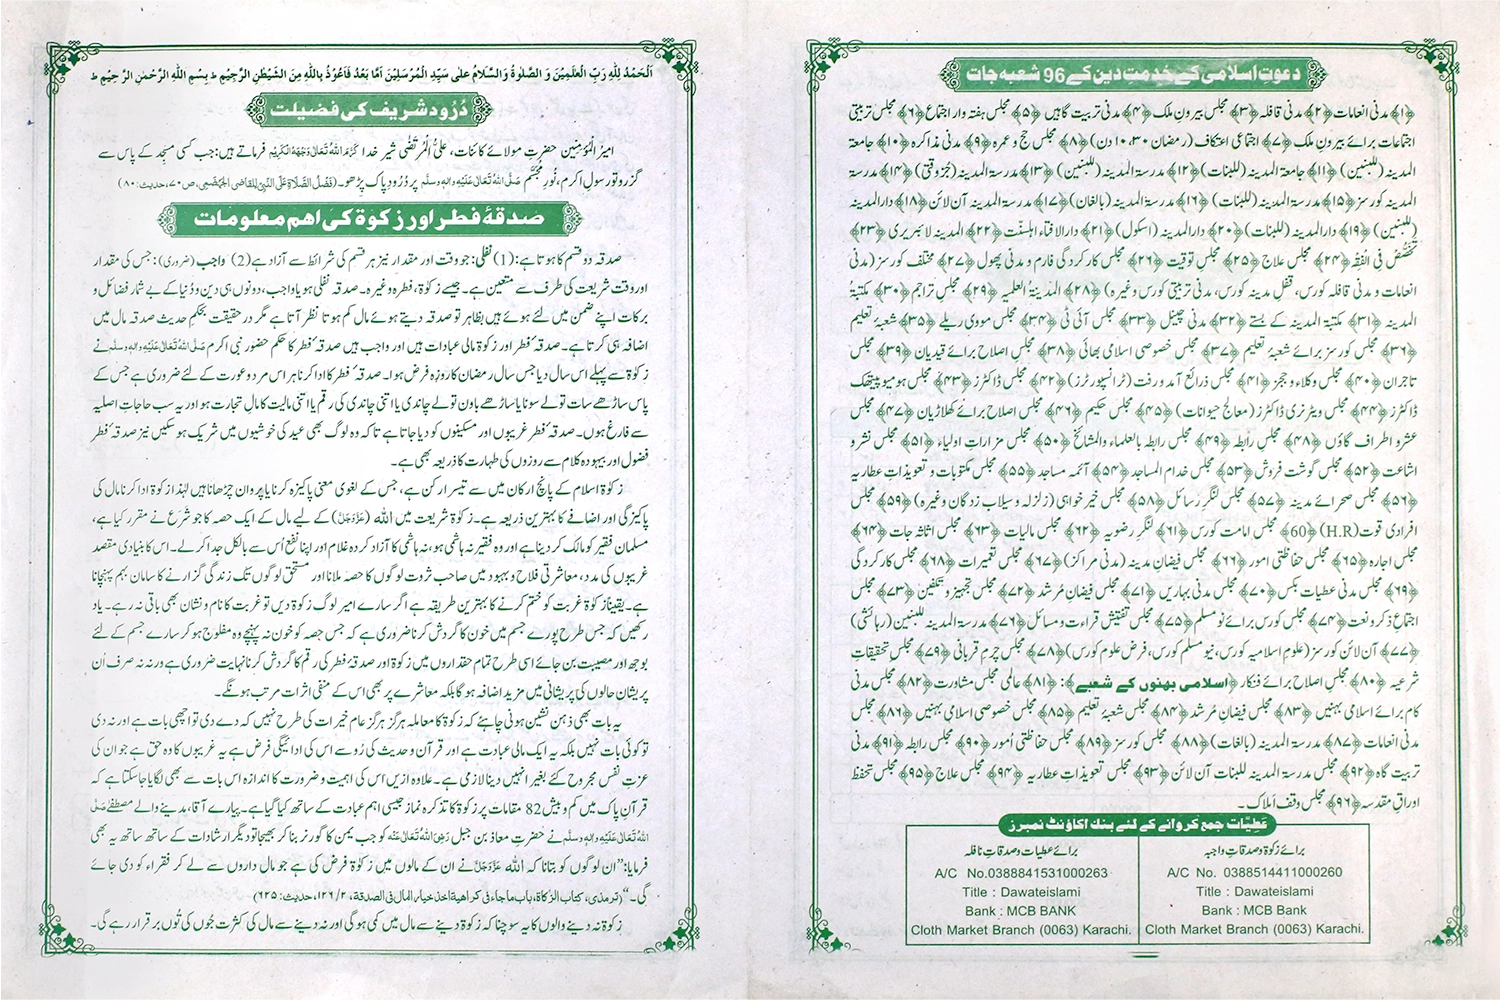 دعوتِ اسلامی کے خدمتِ دین کے 96 شعبہ جات
﴿۱﴾ مدنی انعامات ﴿۲﴾ مدنی قافلہ ﴿۳﴾ مجلس بیرونِ ملک ﴿۴﴾ مدنی تربیت گاہیں ﴿۵﴾ مجلس ہفتہ وار اجتماع ﴿۶﴾ مجلس تربیتی
اجتماعات برائے بیرونِ ملک ﴿۷﴾ اجتماعی اعتکاف (رمضان ۳۰، ۱۰ دن) ﴿۸﴾ مجلس حج و عمرہ ﴿۹﴾ مدنی مذاکرہ ﴿۱۰﴾ جامعۃ
المدینہ (للبنین) ﴿۱۱﴾ جامعۃ المدینہ (للبنات) ﴿۱۲﴾ مدرسۃ المدینہ (للبنین) ﴿۱۳﴾ مدرسۃ المدینہ (جزوقتی) ﴿۱۴﴾ مدرسۃ
المدینہ کورسز ﴿۱۵﴾ مدرسۃ المدینہ (للبنات) ﴿۱۶﴾ مدرسۃ المدینہ (بالغان) ﴿۱۷﴾ مدرسۃ المدینہ آن لائن ﴿۱۸﴾ دارالمدینہ
(للبنین) ﴿۱۹﴾ دارالمدینہ (للبنات) ﴿۲۰﴾ دارالمدینہ (اسکول) ﴿۲۱﴾ دارالافتاء اہلسنّت ﴿۲۲﴾ المدینہ لائبریری ﴿۲۳﴾
تَخَصُّص فِی الْفِقْہ ﴿۲۴﴾ مجلس علاج ﴿۲۵﴾ مجلس توقیت ﴿۲۶﴾ مجلس کارکردگی فارم و مدنی پھول ﴿۲۷﴾ مختلف کورسز (مدنی
انعامات و مدنی قافلہ کورس، قفلِ مدینہ کورس، مدنی تربیتی کورس وغیرہ) ﴿۲۸﴾ المدینۃ العلمیہ ﴿۲۹﴾ مجلس تراجم ﴿۳۰﴾ مکتبۃ
المدینہ ﴿۳۱﴾ مکتبۃ المدینہ کے بستے ﴿۳۲﴾ مدنی چینل ﴿۳۳﴾ مجلس آئی ٹی ﴿۳۴﴾ مجلس مووی ریلے ﴿۳۵﴾ شعبۂ تعلیم
﴿۳۶﴾ مجلس کورسز برائے شعبۂ تعلیم ﴿۳۷﴾ مجلس خصوصی اسلامی بھائی ﴿۳۸﴾ مجلس اصلاح برائے قیدیان ﴿۳۹﴾ مجلس
تاجران ﴿۴۰﴾ مجلس وکلاء و ججز ﴿۴۱﴾ مجلس ذرائع آمد و رفت (ٹرانسپورٹرز) ﴿۴۲﴾ مجلس ڈاکٹرز ﴿۴۳﴾ مجلس ہومیوپیتھک
ڈاکٹرز ﴿۴۴﴾ مجلس ویٹرنری ڈاکٹرز (معالج حیوانات) ﴿۴۵﴾ مجلس حکیم ﴿۴۶﴾ مجلس اصلاح برائے کھلاڑیان ﴿۴۷﴾ مجلس
عشر و اطراف گاؤں ﴿۴۸﴾ مجلس رابطہ ﴿۴۹﴾ مجلس رابطہ بالعلماء والمشائخ ﴿۵۰﴾ مجلس مزاراتِ اولیاء ﴿۵۱﴾ مجلس نشر و
اشاعت ﴿۵۲﴾ مجلس گوشت فروش ﴿۵۳﴾ مجلس خدام المساجد ﴿۵۴﴾ آئمہ مساجد ﴿۵۵﴾ مجلس مکتوبات و تعویذاتِ عطاریہ
﴿۵۶﴾ مجلس صحرائے مدینہ ﴿۵۷﴾ مجلس لنگرِ رسائل ﴿۵۸﴾ مجلس خیر خواہی (زلزلہ و سیلاب زدگان وغیرہ) ﴿۵۹﴾ مجلس
افرادی قوت (H.R) ﴿60﴾ مجلس امامت کورس ﴿۶۱﴾ لنگرِ رضویہ ﴿۶۲﴾ مجلس مالیات ﴿۶۳﴾ مجلس اثاثہ جات ﴿۶۴﴾
مجلس اجارہ ﴿۶۵﴾ مجلس حفاظتی امور ﴿۶۶﴾ مجلس فیضانِ مدینہ (مدنی مراکز) ﴿۶۷﴾ مجلس تعمیرات ﴿۶۸﴾ مجلس کارکردگی
﴿۶۹﴾ مجلس مدنی عطیات بکس ﴿۷۰﴾ مجلس مدنی بہاریں ﴿۷۱﴾ مجلس فیضانِ مُرشد ﴿۷۲﴾ مجلس تجہیز و تکفین ﴿۷۳﴾ مجلس
اجتماعِ ذکر و نعت ﴿۷۴﴾ مجلس کورس برائے نومسلم ﴿۷۵﴾ مجلس تفتیش قراءت و مسائل ﴿۷۶﴾ مدرسۃ المدینہ للبنین (رہائشی)
﴿۷۷﴾ آن لائن کورسز (علومِ اسلامیہ کورس، نیو مسلم کورس، فرض علوم کورس) ﴿۷۸﴾ مجلس چرمِ قربانی ﴿۷۹﴾ مجلس تحقیقاتِ
شرعیہ ﴿۸۰﴾ مجلس اصلاح برائے فنکار ﴿اسلامی بہنوں کے شعبے﴾: ﴿۸۱﴾ عالمی مجلس مشاورت ﴿۸۲﴾ مجلس مدنی
کام برائے اسلامی بہنیں ﴿۸۳﴾ مجلس فیضانِ مُرشد ﴿۸۴﴾ مجلس شعبۂ تعلیم ﴿۸۵﴾ مجلس خصوصی اسلامی بہنیں ﴿۸۶﴾ مجلس
مدنی انعامات ﴿۸۷﴾ مدرسۃ المدینہ (بالغات) ﴿۸۸﴾ مجلس کورسز ﴿۸۹﴾ مجلس حفاظتی اُمور ﴿۹۰﴾ مجلس رابطہ ﴿۹۱﴾ مدنی
تربیت گاہ ﴿۹۲﴾ مجلس مدرسۃ المدینہ للبنات آن لائن ﴿۹۳﴾ مجلس تعویذاتِ عطاریہ ﴿۹۴﴾ مجلس علاج ﴿۹۵﴾ مجلس تحفظِ
اوراقِ مقدسہ ﴿۹۶﴾ مجلس وقف املاک۔
عَطِیّات جمع کروانے کے لئے بینک اکاؤنٹ نمبرز
برائے زکوٰۃ و صدقاتِ واجبہ
A/C No. 0388514411000260
Title : Dawateislami
Bank : MCB Bank
Cloth Market Branch (0063) Karachi.
برائے عطیات و صدقاتِ نافلہ
A/C No.0388841531000263
Title : Dawateislami
Bank : MCB BANK
Cloth Market Branch (0063) Karachi.
اَلْحَمْدُ لِلّٰہِ رَبِّ الْعٰلَمِیْنَ وَ الصَّلٰوۃُ وَالسَّلَامُ عَلٰی سَیِّدِ الْمُرْسَلِیْنَ اَمَّا بَعْدُ فَاَعُوْذُ بِاللّٰہِ مِنَ الشَّیْطٰنِ الرَّجِیْمِ ط بِسْمِ اللّٰہِ الرَّحْمٰنِ الرَّحِیْمِ ط
دُرُود شریف کی فضیلت
امیرُ الْمُؤمِنِین حضرتِ مولائے کائنات، علیُّ الْمُرتَضٰی شیرِ خدا کَرَّمَ اللّٰہُ تَعَالٰی وَجْہَہُ الْکَرِیْم فرماتے ہیں: جب کسی مسجد کے پاس سے
گزرو تو رسولِ اکرم، نُورِ مُجَسَّم صَلَّی اللّٰہُ تَعَالٰی عَلَیْہِ واٰلہٖ وسلَّم پر دُرُودِ پاک پڑھو۔ (فَضْلُ الصَّلَاۃِ عَلَی النَّبِیّ لِلقاضی الجَہضَمِی، ص۷۰، حدیث: ۸۰)
صدقۂ فطر اور زکوٰۃ کی اہم معلومات
صدقہ دو قسم کا ہوتا ہے: (1) نفلی: جو وقت اور مقدار نیز ہر قسم کی شرائط سے آزاد ہے (2) واجب (ضروری): جس کی مقدار
اور وقت شریعت کی طرف سے متعین ہے۔ جیسے زکوٰۃ، فطرہ وغیرہ۔ صدقہ نفلی ہو یا واجب، دونوں ہی دین و دُنیا کے بے شمار فضائل و
برکات اپنے ضمن میں لئے ہوئے ہیں بظاہر تو صدقہ دیتے ہوئے مال کم ہوتا نظر آتا ہے مگر در حقیقت بحکمِ حدیث صدقہ مال میں
اضافہ ہی کرتا ہے۔ صدقۂ فطر اور زکوٰۃ مالی عبادات ہیں اور واجب ہیں صدقۂ فطر کا حکم حضور نبی اکرم صَلَّی اللّٰہُ تَعَالٰی عَلَیْہِ واٰلہٖ وسلَّم نے
زکوٰۃ سے پہلے اس سال دیا جس سال رمضان کا روزہ فرض ہوا۔ صدقۂ فطر کا ادا کرنا ہر اس مرد و عورت کے لئے ضروری ہے جس کے
پاس ساڑھے سات تولے سونا یا ساڑھے باون تولے چاندی یا اتنی چاندی کی رقم یا اتنی مالیت کا مالِ تجارت ہو اور یہ سب حاجاتِ اصلیہ
سے فارغ ہوں۔ صدقۂ فطر غریبوں اور مسکینوں کو دیا جاتا ہے تاکہ وہ لوگ بھی عید کی خوشیوں میں شریک ہو سکیں نیز صدقۂ فطر
فضول اور بیہودہ کلام سے روزوں کی طہارت کا ذریعہ بھی ہے۔
زکوٰۃ اسلام کے پانچ ارکان میں سے تیسرا رکن ہے، جس کے لغوی معنی پاکیزہ کرنا یا پروان چڑھانا ہیں لہٰذا زکوٰۃ ادا کرنا مال کی
پاکیزگی اور اضافے کا بہترین ذریعہ ہے۔ زکوٰۃ شریعت میں اللہ (عَزَّوَجَلَّ) کے لیے مال کے ایک حصہ کا جو شَرْع نے مقرر کیا ہے،
مسلمان فقیر کو مالک کر دینا ہے اور وہ فقیر نہ ہاشمی ہو، نہ ہاشمی کا آزاد کردہ غلام اور اپنا نفع اُس سے بالکل جدا کر لے۔ اس کا بنیادی مقصد
غریبوں کی مدد، معاشرتی فلاح و بہبود میں صاحب ثروت لوگوں کا حصہ ملانا اور مستحق لوگوں تک زندگی گزارنے کا سامان بہم پہنچانا
ہے۔ یقیناً زکوٰۃ غربت کو ختم کرنے کا بہترین طریقہ ہے اگر سارے امیر لوگ زکوٰۃ دیں تو غربت کا نام و نشان بھی باقی نہ رہے۔ یاد
رکھیں کہ جس طرح پورے جسم میں خون کا گردش کرنا ضروری ہے کہ جس حصہ کو خون نہ پہنچے وہ مفلوج ہو کر سارے جسم کے لئے
بوجھ اور مصیبت بن جائے اسی طرح تمام حقداروں میں زکوٰۃ اور صدقۂ فطر کی رقم کا گردش کرنا نہایت ضروری ہے ورنہ نہ صرف اُن
پریشان حالوں کی پریشانی میں مزید اضافہ ہو گا بلکہ معاشرے پر بھی اس کے منفی اثرات مرتب ہونگے۔
یہ بات بھی ذہن نشین ہونی چاہئے کہ زکوٰۃ کا معاملہ ہرگز ہرگز عام خیرات کی طرح نہیں کہ دے دی تو اچھی بات ہے اور نہ دی
تو کوئی بات نہیں بلکہ یہ ایک مالی عبادت ہے اور قرآن و حدیث کی رُو سے اس کی ادائیگی فرض ہے یہ غریبوں کا وہ حق ہے جو ان کی
عزتِ نفس مجروح کئے بغیر انہیں دینا لازمی ہے۔ علاوہ ازیں اس کی اہمیت و ضرورت کا اندازہ اس بات سے بھی لگایا جا سکتا ہے کہ
قرآنِ پاک میں کم و بیش 82 مقامات پر زکوٰۃ کا تذکرہ نماز جیسی اہم عبادت کے ساتھ کیا گیا ہے۔ پیارے آقا، مدینے والے مصطفٰے صَلَّی
اللّٰہُ تَعَالٰی عَلَیْہِ واٰلہٖ وسلَّم نے حضرتِ معاذ بن جبل رَضِیَ اللّٰہُ تَعَالٰی عَنْہ کو جب یمن کا گورنر بنا کر بھیجا تو دیگر ارشادات کے ساتھ ساتھ یہ بھی
فرمایا: ”ان لوگوں کو بتانا کہ اللہ عَزَّوَجَلَّ نے ان کے مالوں میں زکوٰۃ فرض کی ہے جو مال داروں سے لے کر فقراء کو دی جائے
گی۔“ (ترمذی، کتاب الزکاۃ، باب ما جاء فی کراھیۃ اخذ خیار المال فی الصدقۃ، ۲/۱۲۶، حدیث: ۶۲۵)
زکوٰۃ نہ دینے والوں کا یہ سوچنا کہ زکوٰۃ دینے سے مال میں کمی ہو گی اور نہ دینے سے مال کی کثرت جُوں کی تُوں برقرار رہے گی۔